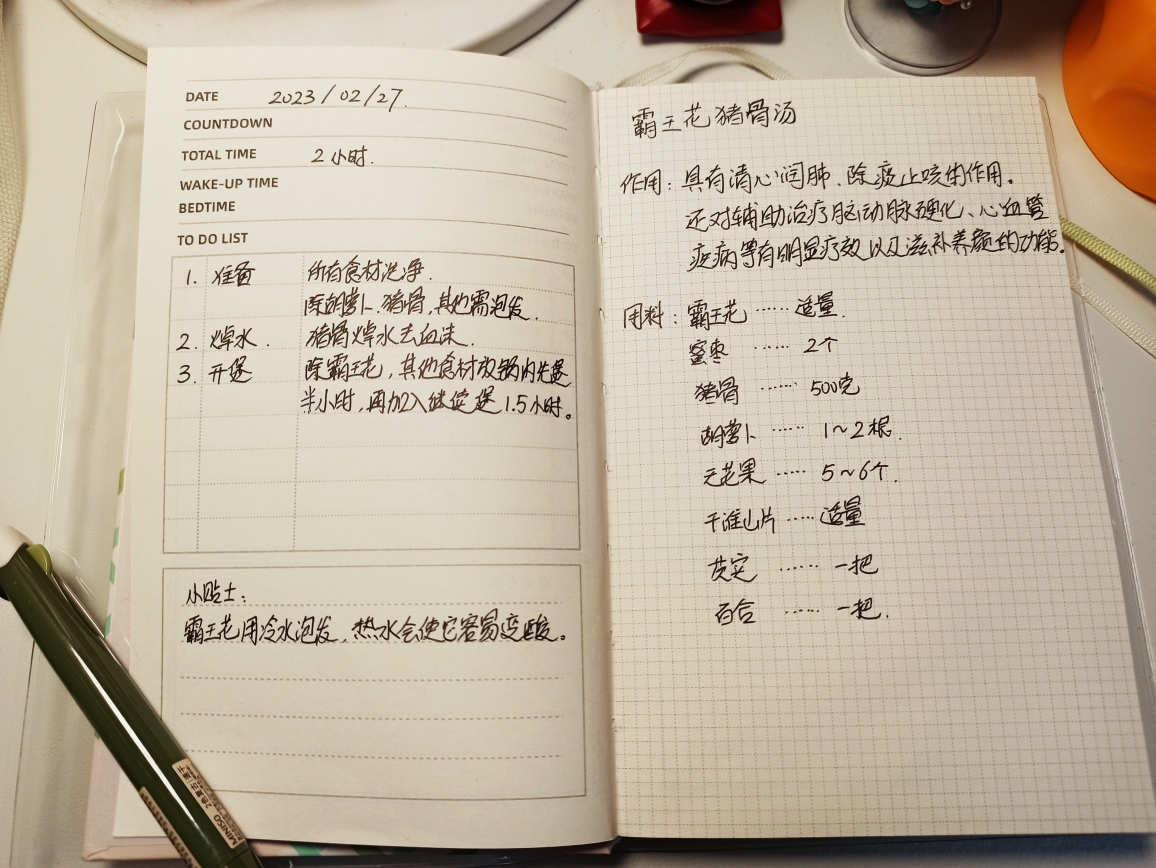 DATE 2023/02/27.
COUNTDOWN
TOTAL TIME 2小时.
WAKE-UP TIME
BEDTIME
TO DO LIST
1. 准备 所有食材洗净.
除胡萝卜.猪骨,其他需泡发.
2. 焯水. 猪骨焯水去血沫.
3. 开煲 除霸王花,其他食材放锅内先煲
半小时,再加入继续煲1.5小时。
小贴士:
霸王花用冷水泡发,热水会使它容易变酸。
霸王花猪骨汤
作用:具有清心润肺、除痰止咳的作用.
还对辅助治疗脑动脉硬化、心血管
疾病等有明显疗效以及滋补养颜的功能.
用料:霸王花……适量.
蜜枣……2个
猪骨……500克
胡萝卜……1~2根.
无花果……5~6个.
干淮山片……适量
芡实……一把
百合……一把.
MINISO